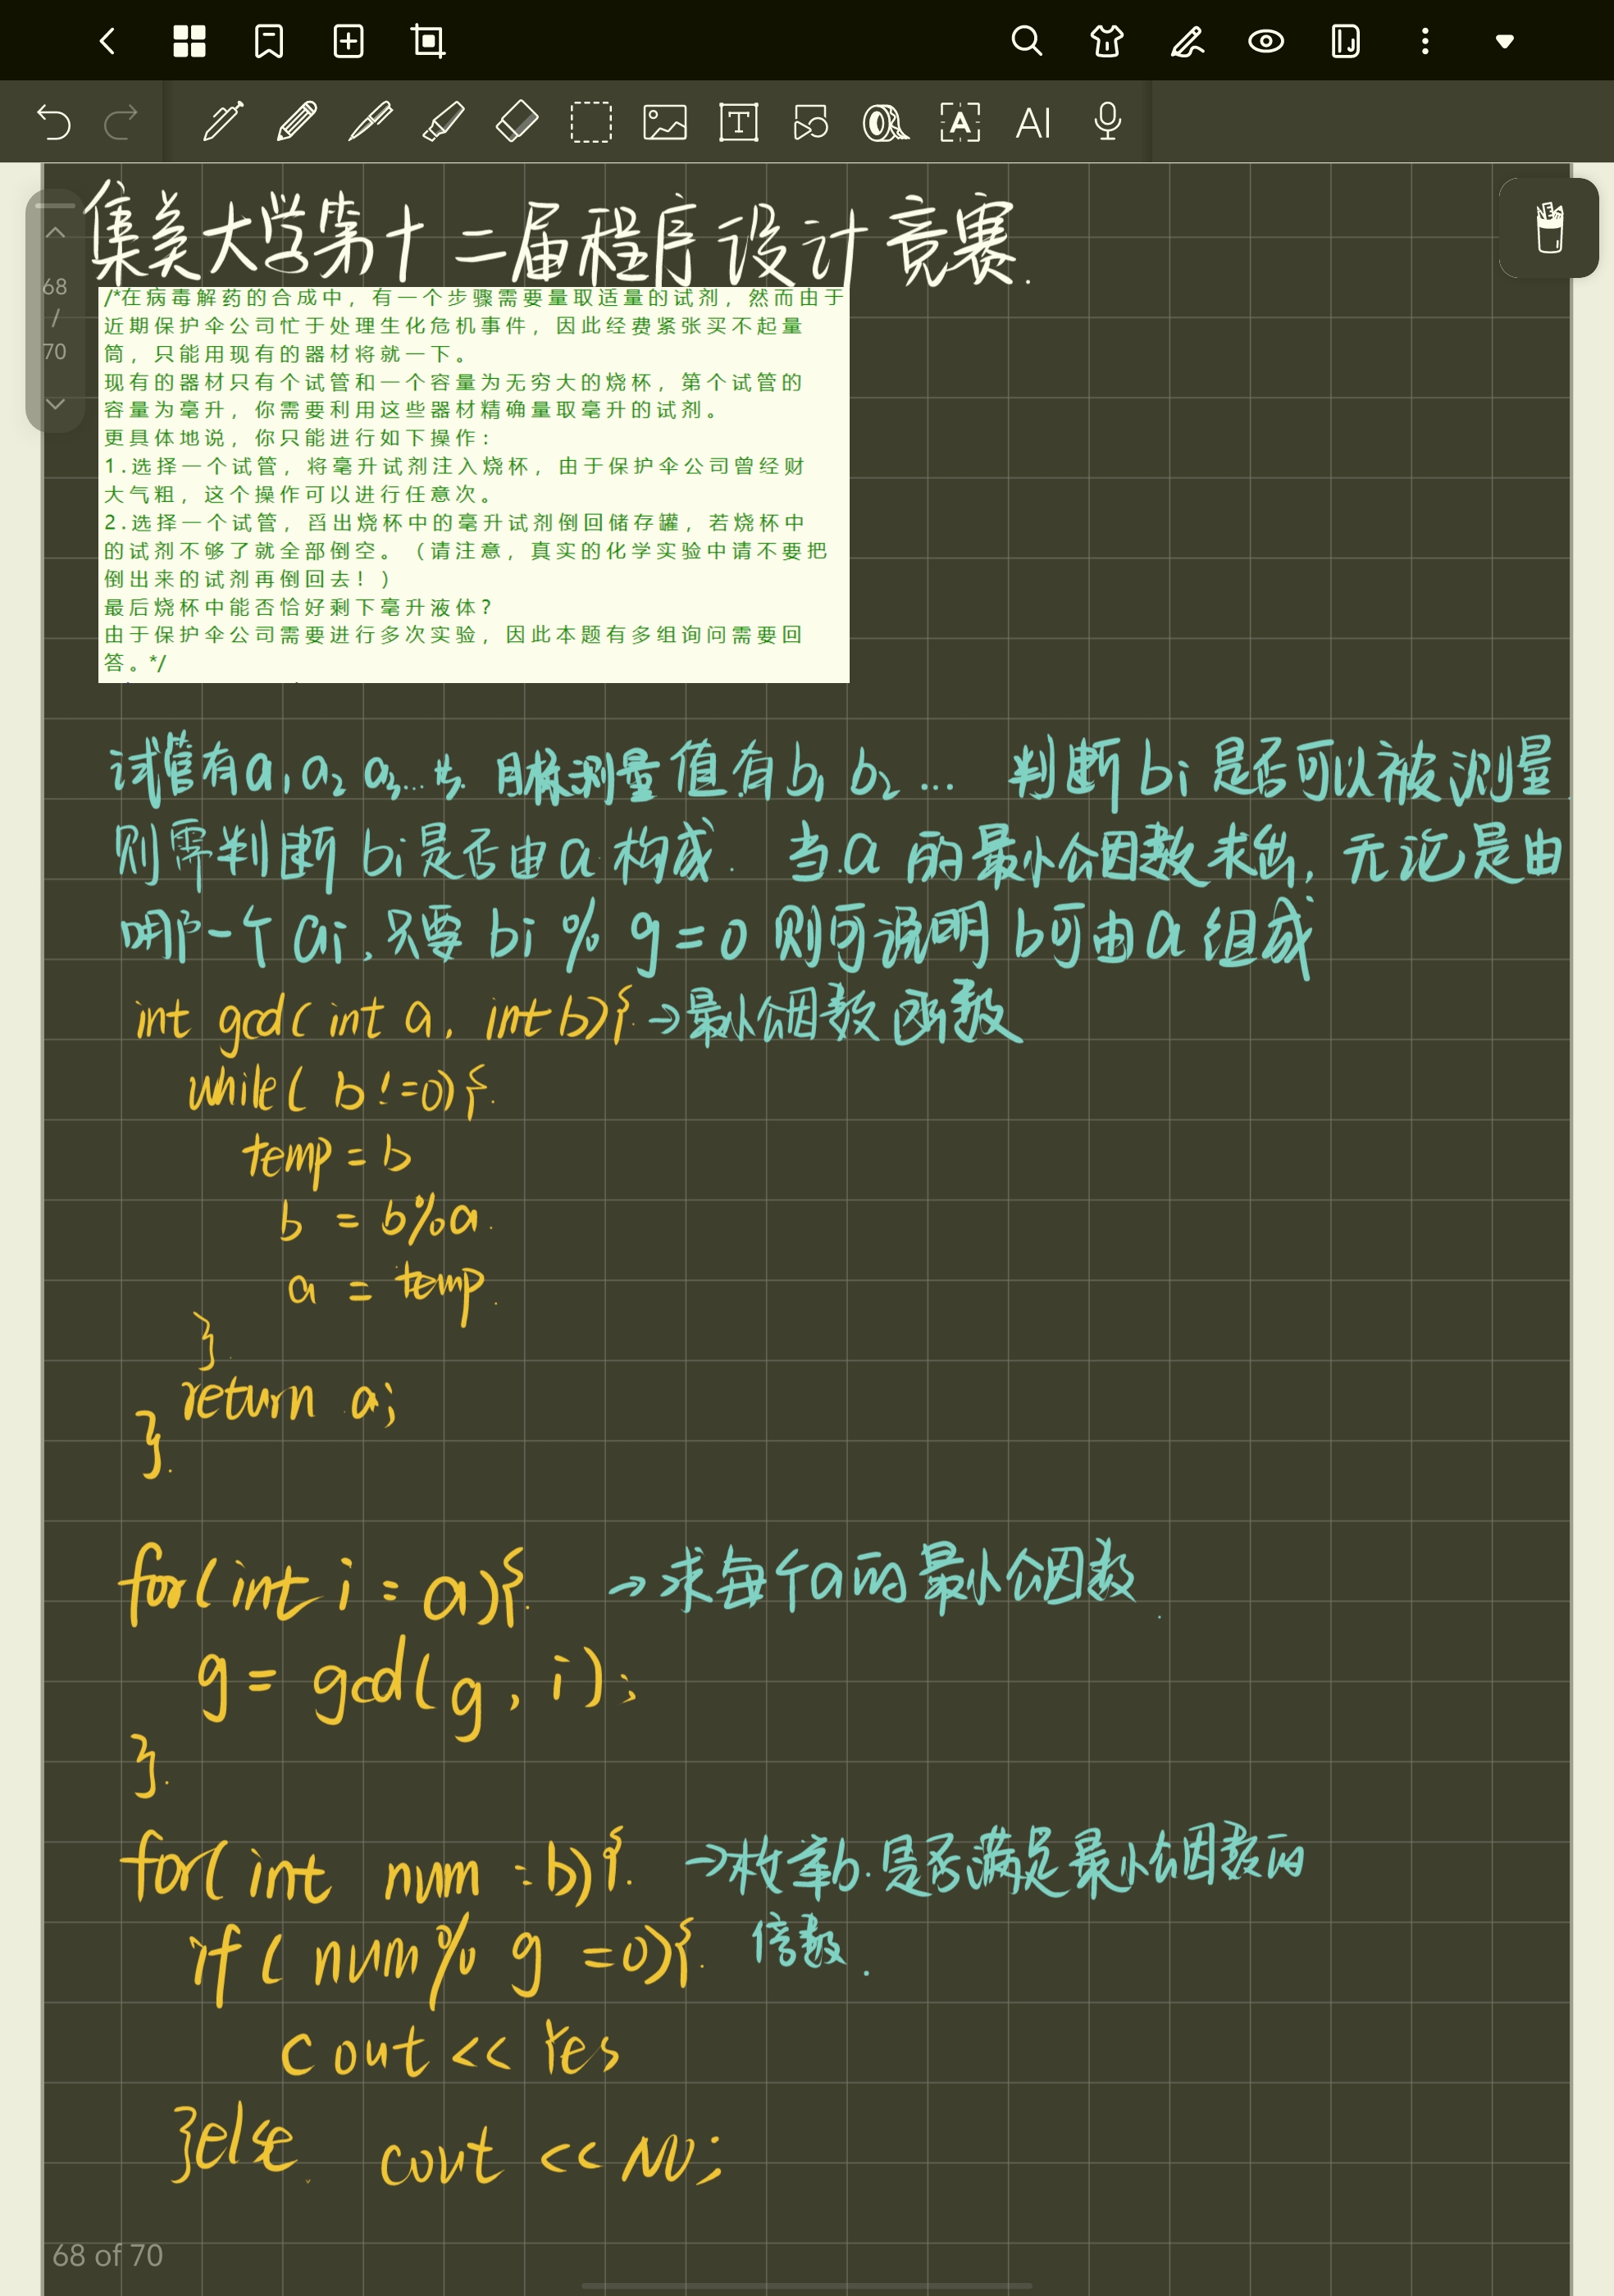 集美大学第十二届程序设计竞赛.
68
/
70
/*在病毒解药的合成中，有一个步骤需要量取适量的试剂，然而由于
近期保护伞公司忙于处理生化危机事件，因此经费紧张买不起量
筒，只能用现有的器材将就一下。
现有的器材只有个试管和一个容量为无穷大的烧杯，第个试管的
容量为毫升，你需要利用这些器材精确量取毫升的试剂。
更具体地说，你只能进行如下操作：
1.选择一个试管，将毫升试剂注入烧杯，由于保护伞公司曾经财
大气粗，这个操作可以进行任意次。
2.选择一个试管，舀出烧杯中的毫升试剂倒回储存罐，若烧杯中
的试剂不够了就全部倒空。（请注意，真实的化学实验中请不要把
倒出来的试剂再倒回去！）
最后烧杯中能否恰好剩下毫升液体？
由于保护伞公司需要进行多次实验，因此本题有多组询问需要回
答。*/
试管有a1 a2 a3... 测量值有b1 b2 ... 判断bi是否可以被测量.
则需判断bi是否由a构成. 当a的最小公因数求出, 无论是由
哪一个ai,只要bi % g = 0 则可说明b可由a组成
int gcd( int a, int b){ →最小公因数函数
while( b != 0){
temp = b
b = b%a
a = temp
}
return a;
}
for(int i : a){ →求每个a的最小公因数
g = gcd(g, i);
}
for( int num : b){ →枚举b.是否满足最小公因数的
倍数.
if( num% g =0){
cout << Yes
}else cout << No;
68 of 70